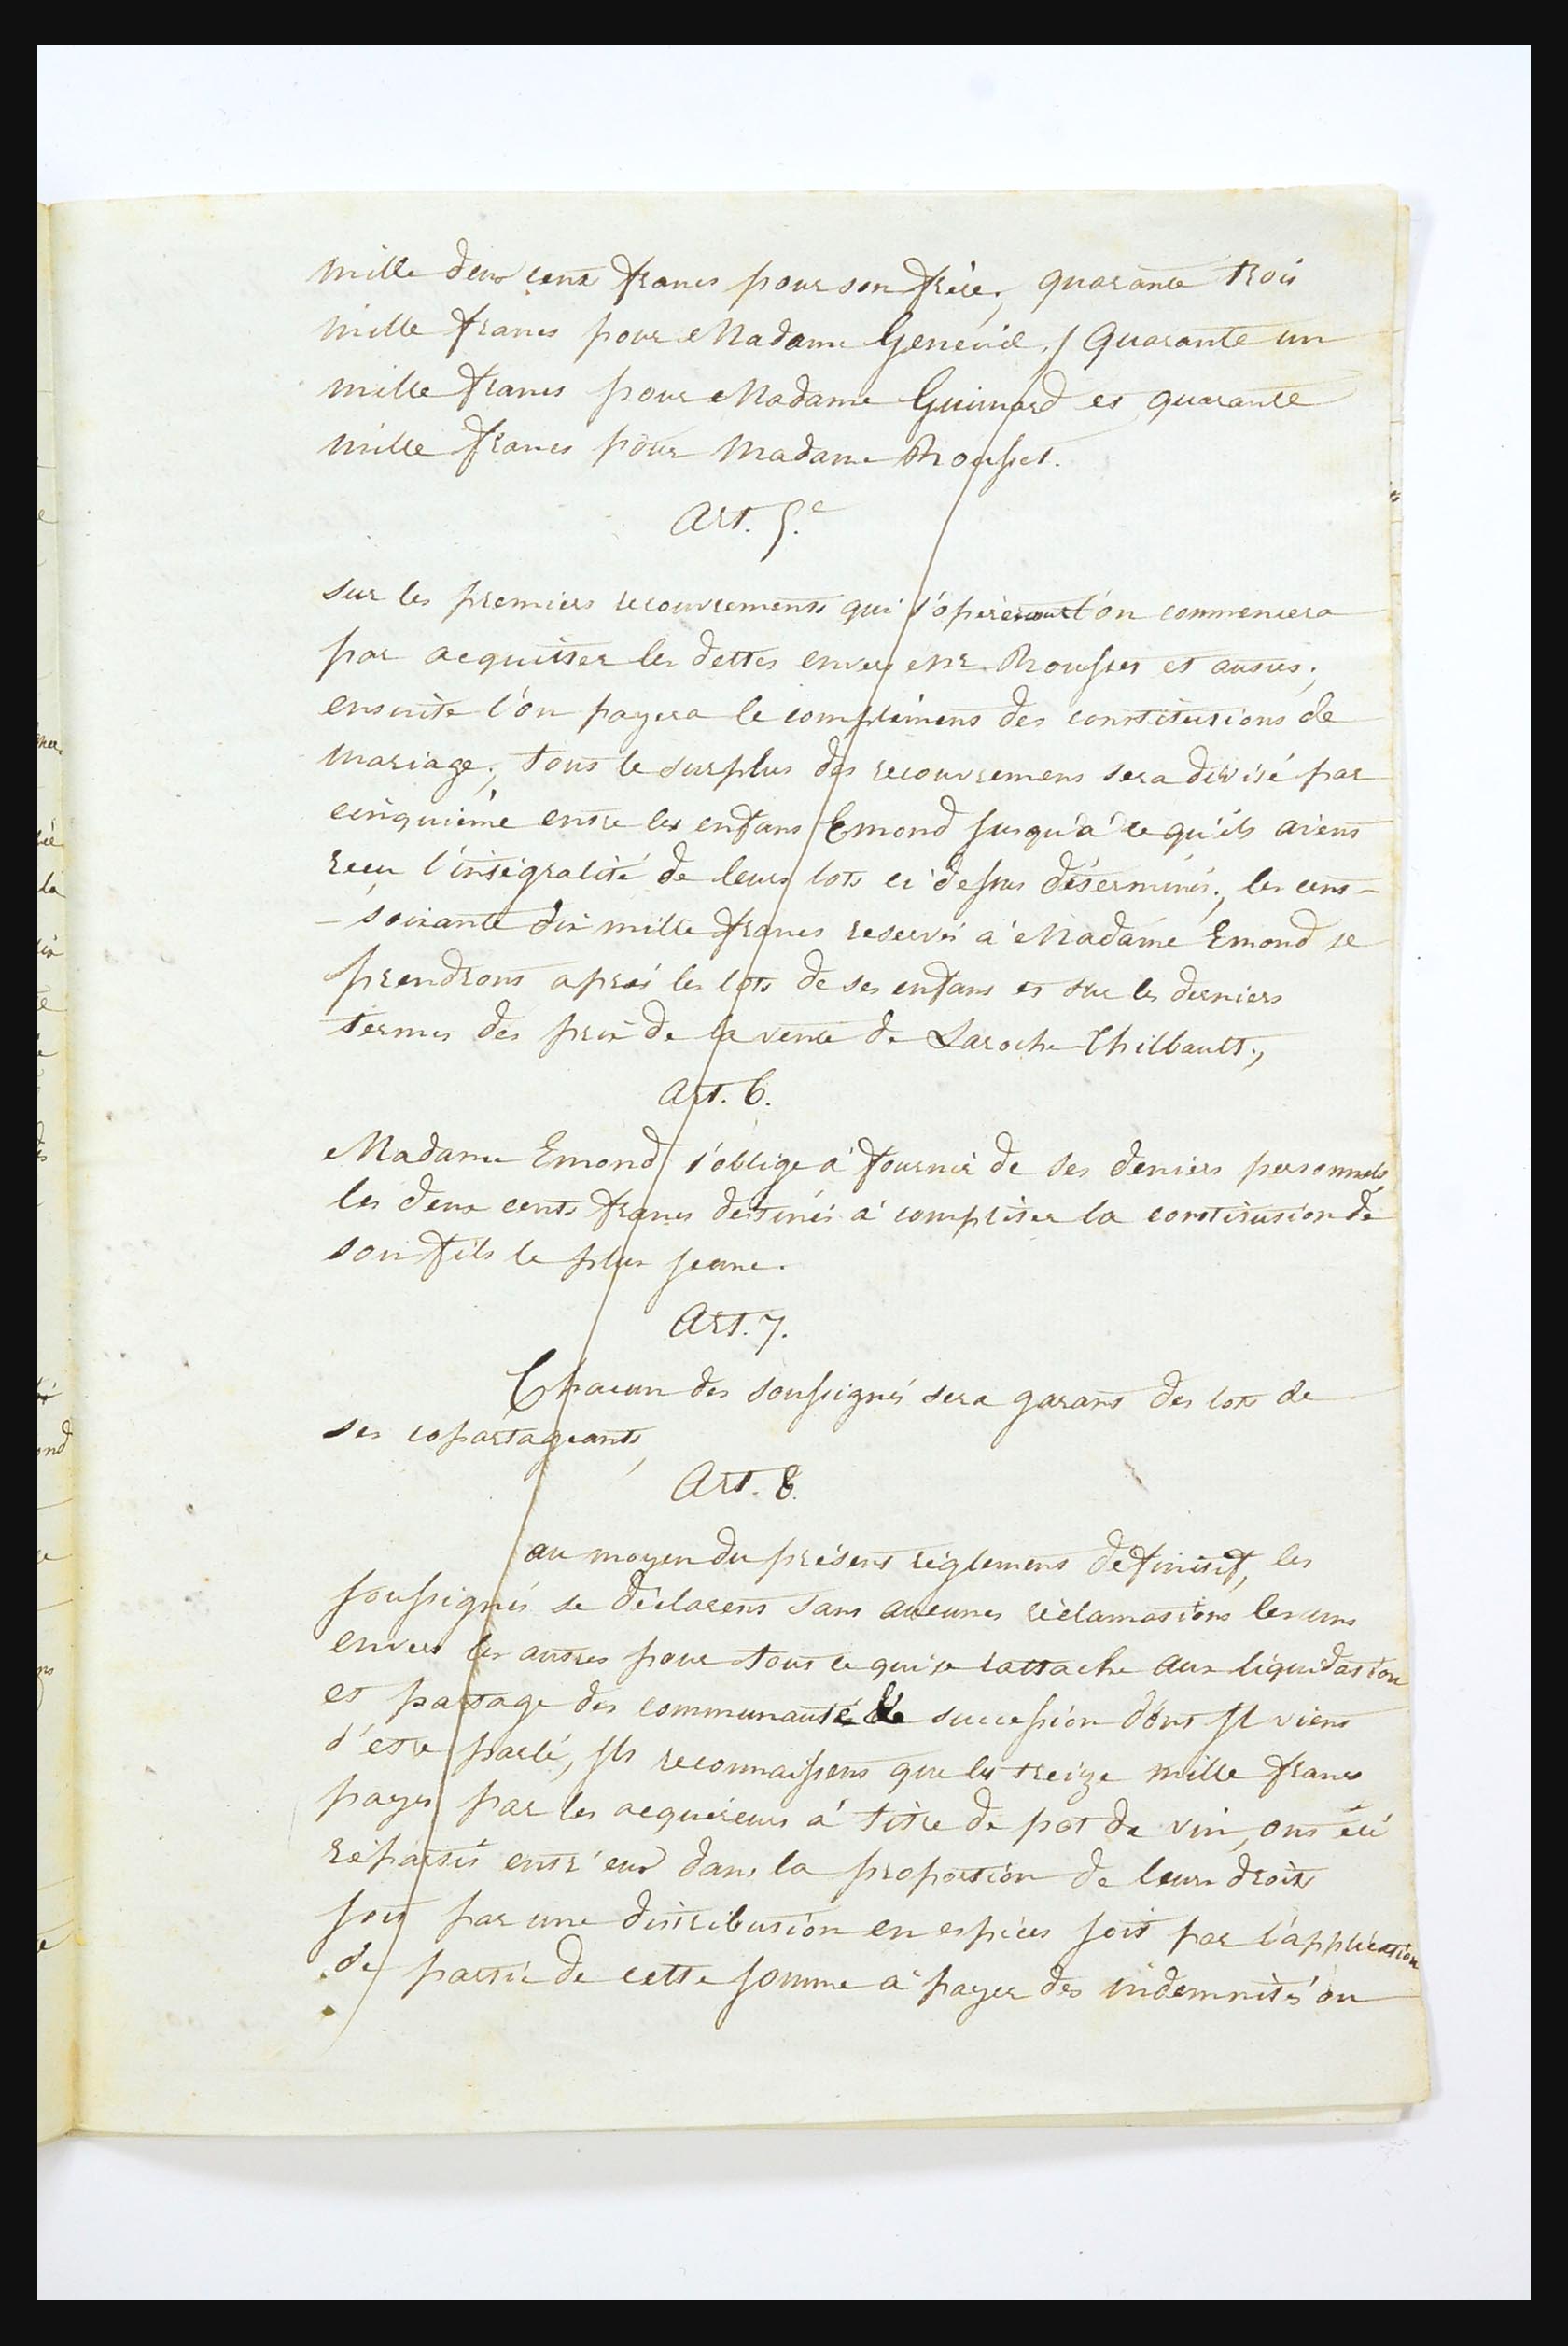 mille deux cent francs pour son frère ; quarante trois
mille francs pour Madame Geneuil ; Quarante un
mille francs pour Madame Guimard et quarante
mille francs pour Madame Rousset.
Art. 5.e
sur les premiers recouvrements qui s'opèreront l'on commencera
par acquitter les dettes envers Mr Rousset et autres ;
ensuite l'on payera le complément des constitutions de
mariage ; tout le surplus des recouvremens sera divisé par
cinquième entre les enfans Emond jusqu'à ce qu'ils aient
reçu l'intégralité de leurs lots ci dessus déterminés ; les cent -
- soixante dix mille francs reservés à Madame Emond se
prendront après les lots de ses enfans et sur les derniers
termes des prix de la vente de Laroche Thilbault ;
Art. 6.
Madame Emond s'oblige à fournir de ses deniers personnels
les deux cents francs destinés à compléter la constitution de
son fils le plus jeune.
Art. 7.
Chacun des soussignés sera garant des lots de
ses copartageants
Art. 8.
au moyen du présent règlement définitif, les
soussignés se déclarent sans aucunes réclamations les uns
envers les autres pour tout ce qui se rattache aux liquidation
et partage des communauté & succession dont il vient
d'être parlé, ils reconnaissent que les treize mille francs
payés par les acquéreurs à titre de pot de vin, ont été
répartis entr'eux dans la proportion de leurs droits
soit par une distribution en espèces soit par l'application
de partie de cette somme à payer des indemnités ou